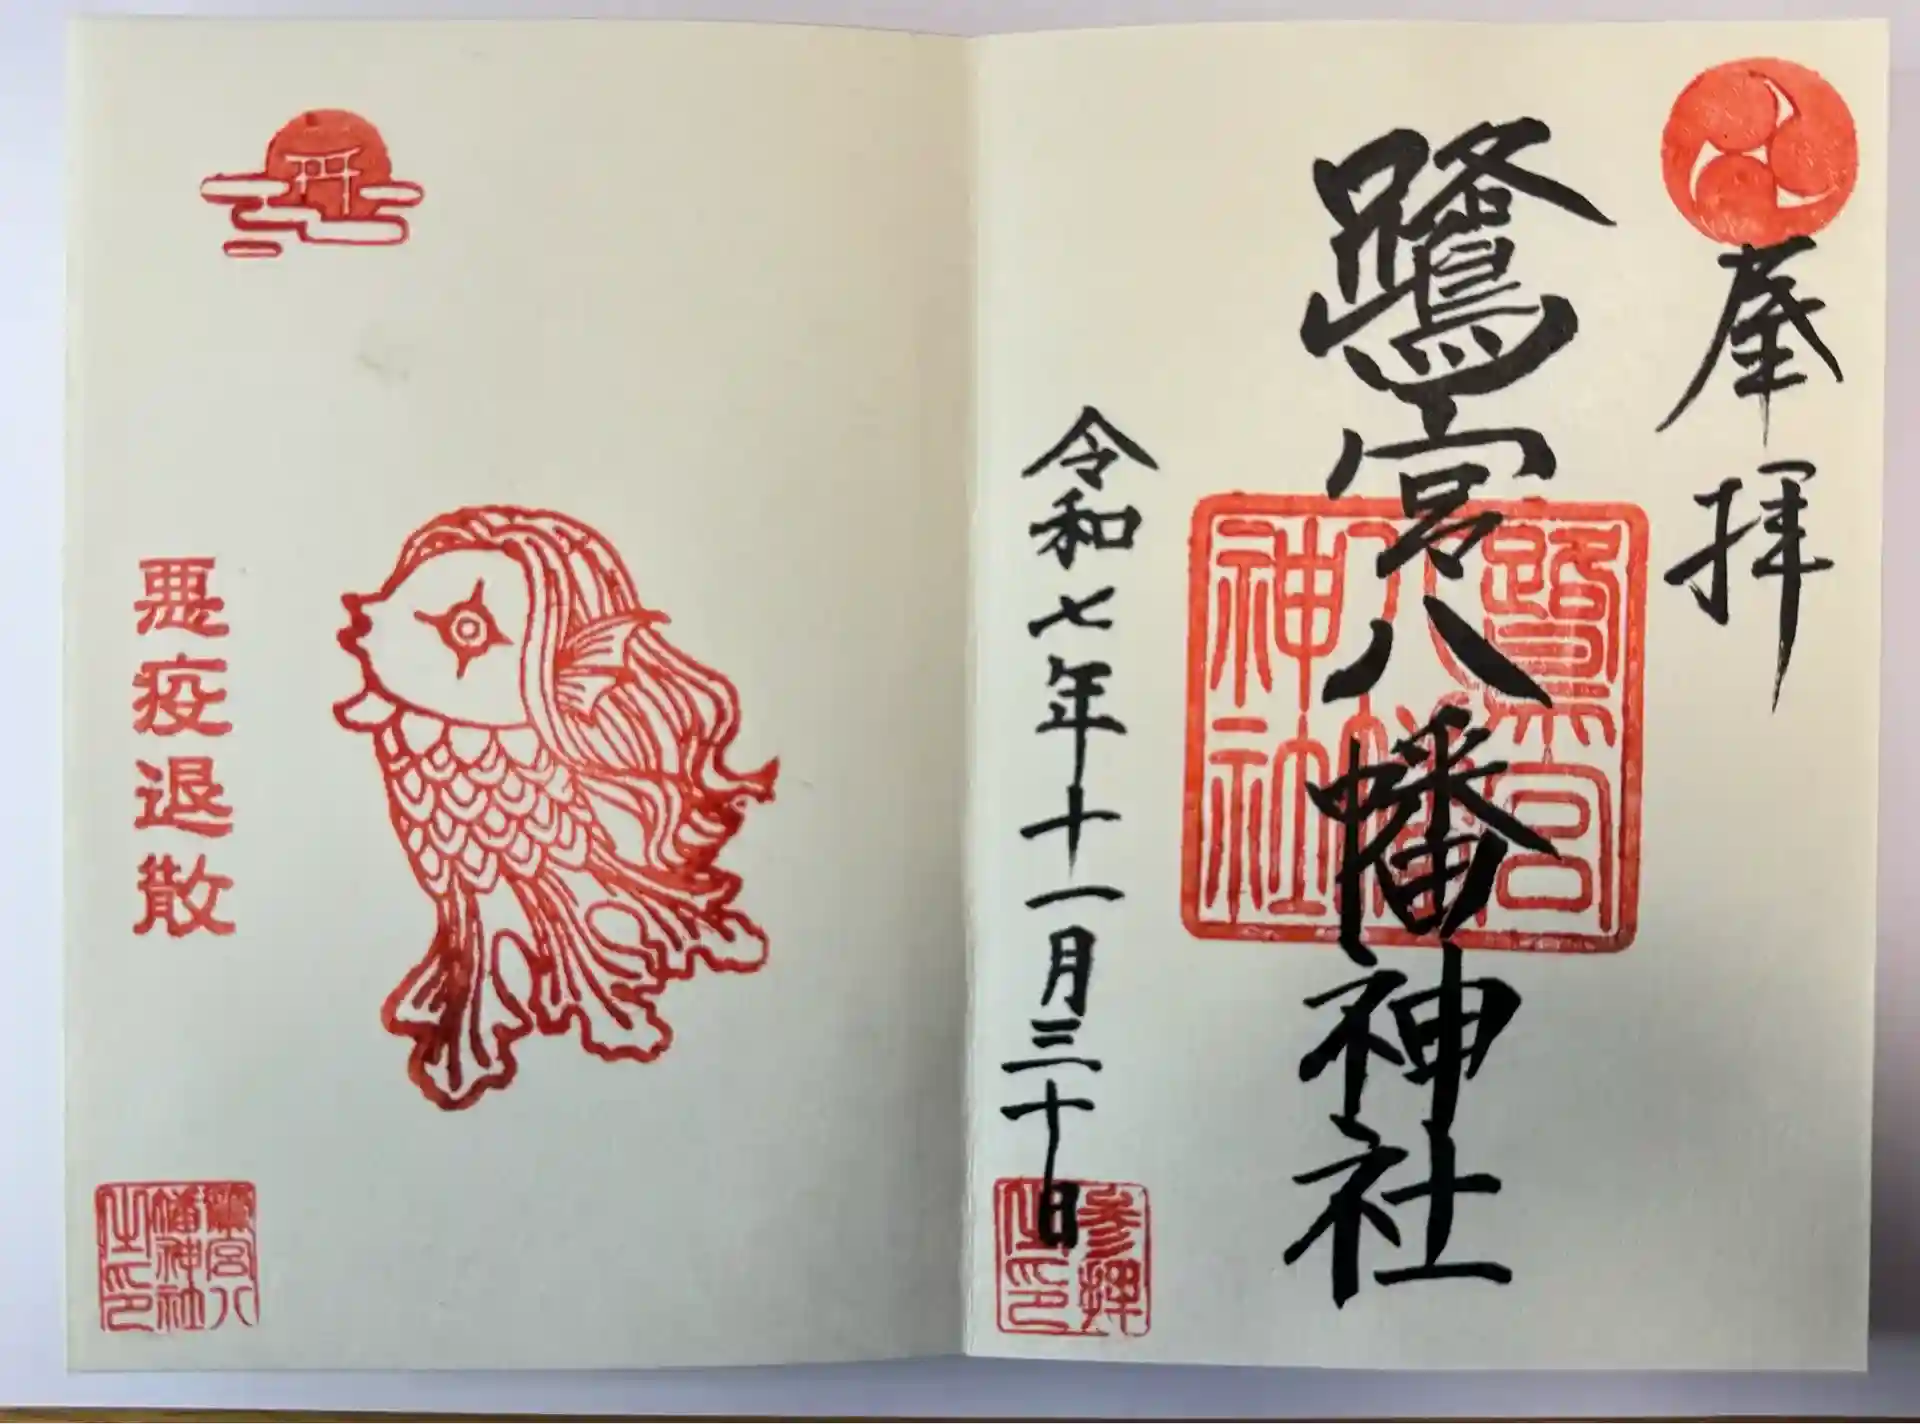 奉拝
鷺宮八幡神社
令和七年十一月三十日
鷺宮
八幡
神社
参拝
之印
悪疫退散
鷺宮八
幡神社
之印